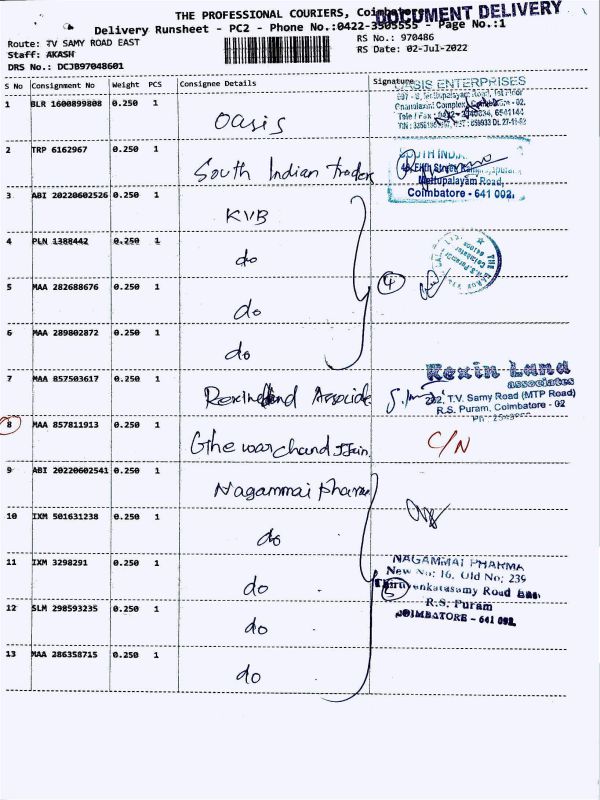 THE PROFESSIONAL COURIERS, Coimbatore
DOCUMENT DELIVERY
Delivery Runsheet - PC2 - Phone No.:0422-3505555 - Page No.:1
Route: TV SAMY ROAD EAST
RS No.: 970486
Staff: AKASH
RS Date: 02-Jul-2022
DRS No.: DCJB97048601
S No Consignment No Weight PCS Consignee Details Signature
1 BLR 1600899808 0.250 1 Oasis
OASIS ENTERPRISES
2 TRP 6162967 0.250 1 South Indian traders
SOUTH
Mettupalayam Road,
Coimbatore - 641 002.
3 ABI 20220602526 0.250 1 KVB
4 PLN 1388442 0.250 1 do
5 MAA 282688676 0.250 1 do 4
6 MAA 289802872 0.250 1 do
7 MAA 857503617 0.250 1
Rexin Land
associates
282, T.V. Samy Road (MTP Road)
R.S. Puram, Coimbatore - 02
8 MAA 857811913 0.250 1 C/N
9 ABI 20220602541 0.250 1 Nagammai pharma
10 IXM 501631238 0.250 1 do
11 IXM 3298291 0.250 1 do 5
NAGAMMAI PHARMA
New No; 16, Old No; 239
Thiruvenkatasamy Road East
R.S. Puram
COIMBATORE - 641 002.
12 SLM 298593235 0.250 1 do
13 MAA 286358715 0.250 1 do